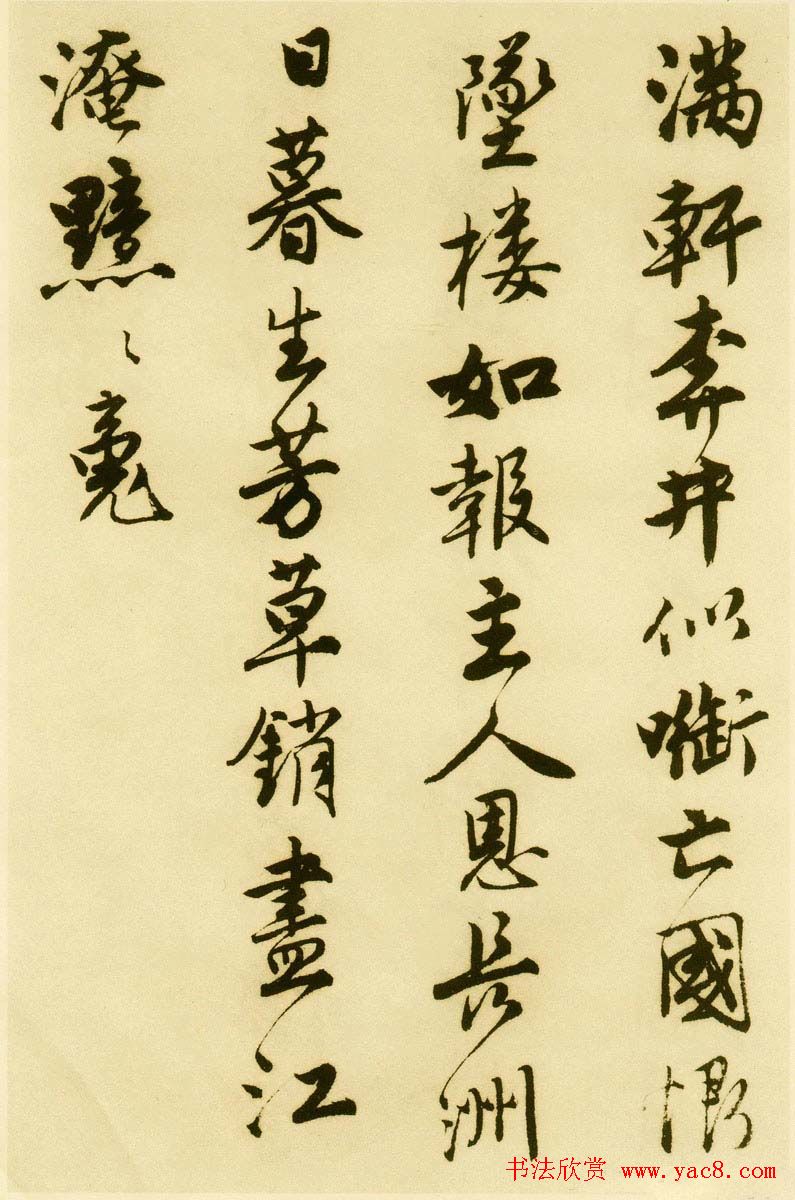 滿軒奔井似㘅亡國恨
墜楼如報主人恩長洲
日暮生芳草銷盡江
淹黯〻魂
书法欣赏 www.yac8.com